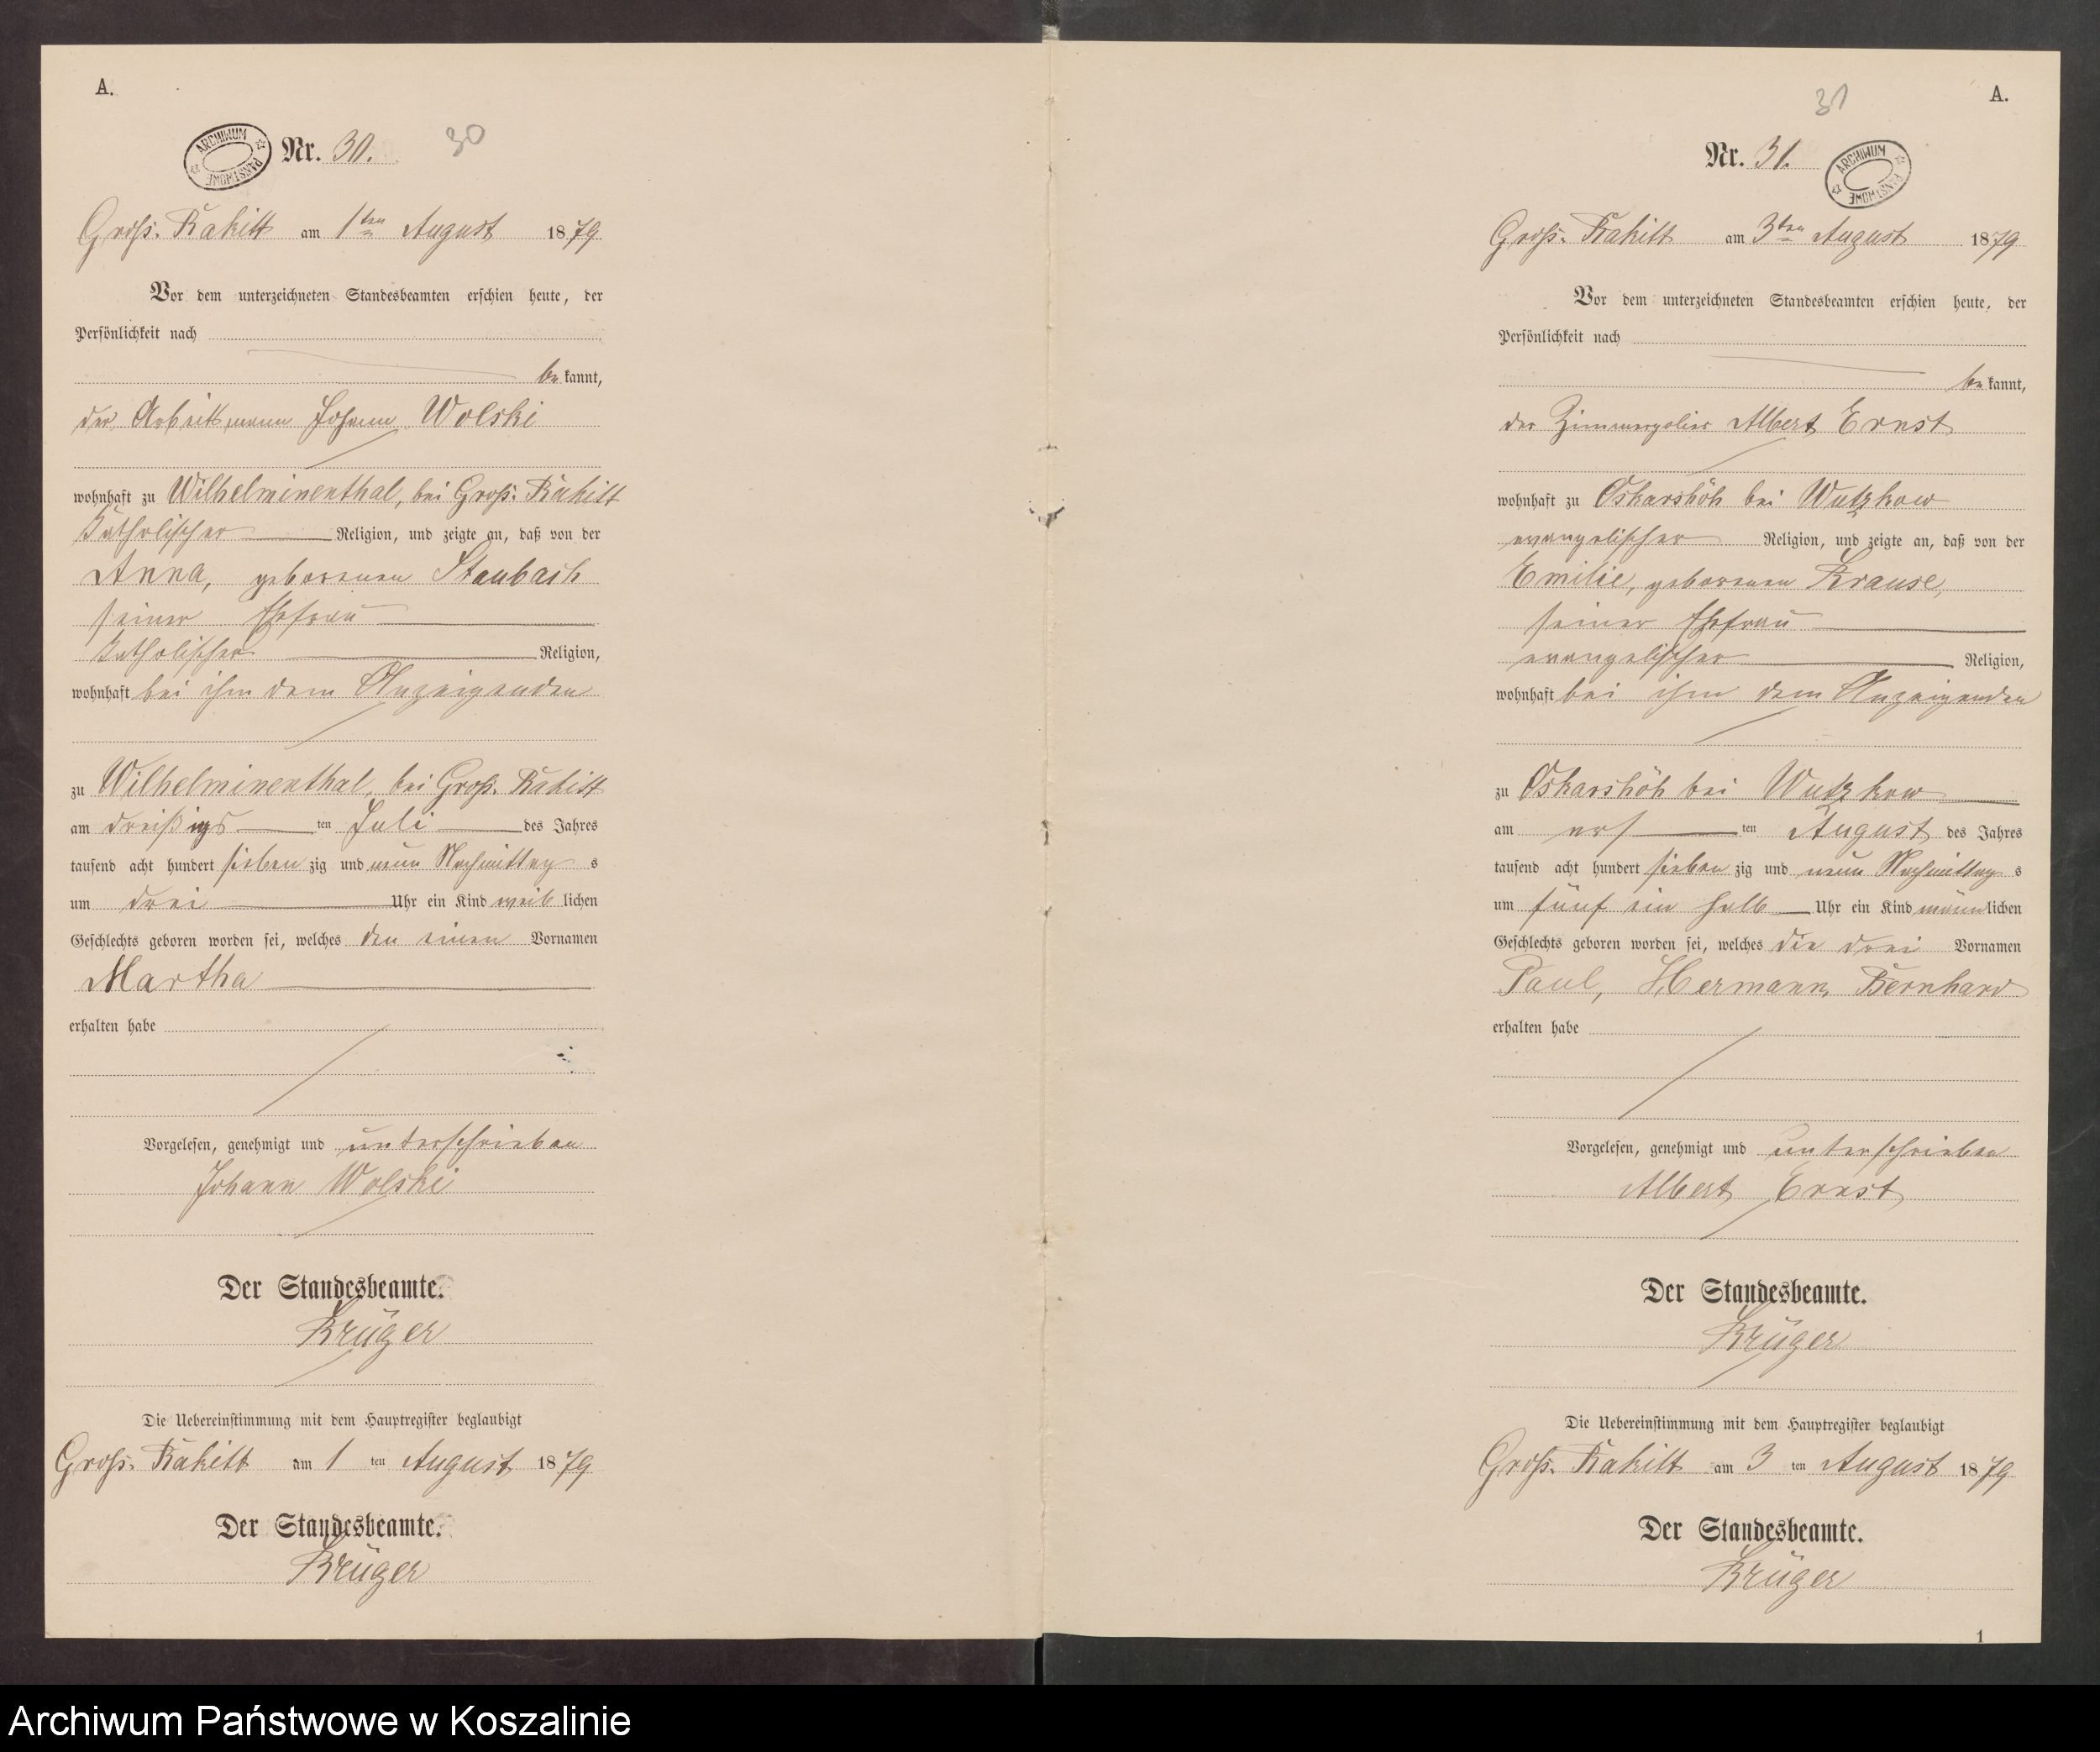 A.
ARCHIWUM PAŃSTWOWE
Nr. 30. 30
Groß-Rakitt am 1ten August 1879
Vor dem unterzeichneten Standesbeamten erschien heute, der
Persönlichkeit nach
bekannt,
der Arbeitsmann Johann Wolski
wohnhaft zu Wilhelminenthal, bei Groß-Rakitt
katholischer Religion, und zeigte an, daß von der
Anna, geborenen Staubach
seiner Ehefrau
katholischer Religion,
wohnhaft bei ihm dem Anzeigenden
zu Wilhelminenthal, bei Groß-Rakitt
am dreißigs ten Juli des Jahres
tausend acht hundert siebenzig und neun Nachmittags
um drei Uhr ein Kind weiblichen
Geschlechts geboren worden sei, welches den einen Vornamen
Martha
erhalten habe
Vorgelesen, genehmigt und unterschrieben
Johann Wolski
Der Standesbeamte.
Krüger
Die Uebereinstimmung mit dem Hauptregister beglaubigt
Groß-Rakitt am 1 ten August 1879
Der Standesbeamte.
Krüger
31 A.
Nr. 31.
ARCHIWUM PAŃSTWOWE
Groß-Rakitt am 3ten August 1879
Vor dem unterzeichneten Standesbeamten erschien heute, der
Persönlichkeit nach
bekannt,
der Zimmerpolier Albert Ernst
wohnhaft zu Oskarshöh bei Wutzkow
evangelischer Religion, und zeigte an, daß von der
Emilie, geborenen Krause,
seiner Ehefrau
evangelischer Religion,
wohnhaft bei ihm dem Anzeigenden
zu Oskarshöh bei Wutzkow
am ers ten August des Jahres
tausend acht hundert siebenzig und neun Nachmittags
um fünf ein halb Uhr ein Kind männlichen
Geschlechts geboren worden sei, welches die drei Vornamen
Paul, Hermann, Bernhard
erhalten habe
Vorgelesen, genehmigt und unterschrieben
Albert Ernst
Der Standesbeamte.
Krüger
Die Uebereinstimmung mit dem Hauptregister beglaubigt
Groß-Rakitt am 3 ten August 1879
Der Standesbeamte.
Krüger
1
Archiwum Państwowe w Koszalinie